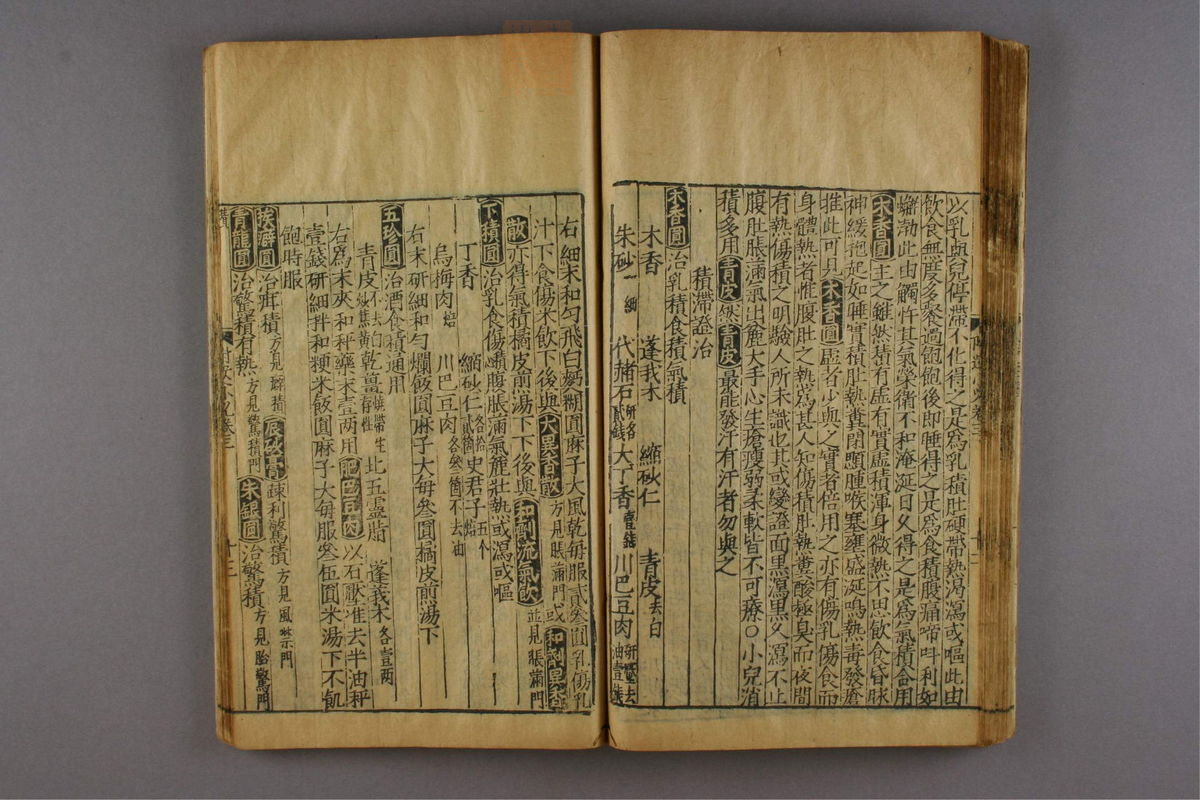 以乳與兒停滯不化得之是爲乳積肚硬帶熱渴瀉或嘔此由
飲食無度多餐過飽飽後即睡得之是爲食積腹痛啼叫利如
蠏渤此由觸忤其氣榮衛不和淹涎日久得之是爲氣積合用
木香圓主之雖然積有虛有實虛積渾身微熱不思飲食昏脉
神緩抱起如睡實積肚熱糞閉顋腫喉塞壅盛涎鳴熱毒發瘡
推此可見木香圓虛者少與之實者倍用之亦有傷乳傷食而
身體熱者惟腹肚之熱爲甚人知傷積肚熱糞酸極臭而夜間
有熱傷積之明驗人所未識也其或變證面黑瀉黑久瀉不止
腹肚脹滿氣出麄大手心生瘡瘦弱柔軟皆不可療○小兒消
積多用青皮然青皮最能發汗有汗者勿與之
積滯證治
木香圓 治乳積食積氣積
木香 蓬莪朮 縮砂仁 青皮去白
朱砂一 細 代赭石 研各貳錢 大丁香壹錢 川巴豆肉 研壓去油壹錢
右細末和勻飛白麪糊圓麻子大風乾每服貳叁圓乳傷乳
汁下食傷米飲下後與大異香散 方見脹滿門 或和劑異香
散亦得氣積橘皮煎湯下下後與和劑流氣飲 並見脹滿門
下積圓 治乳食傷積腹脹滿氣麄壯熱或瀉或嘔
丁香 縮砂仁各拾貳箇 史君子焙五个
烏梅肉焙 川巴豆肉各叁箇不去油
右末研細和勻爛飯圓麻子大每叁圓橘皮煎湯下
五珍圓 治酒食積通用
青皮不去白炒焦黃 乾薑燒帶生存性 北五靈脂 蓬莪朮各壹兩
右爲末夾和秤藥末壹兩用肥巴豆肉以石壓堆去半油秤
壹錢研細拌和粳米飯圓麻子大每服叁伍圓米湯下不飢
飽時服
挨癖圓 治疳積 方見癖積 辰砂膏 疎利驚積 方見風禁門
青龍圓 治驚積有熱 方見驚積門 朱銀圓 治驚積 方見胎驚門